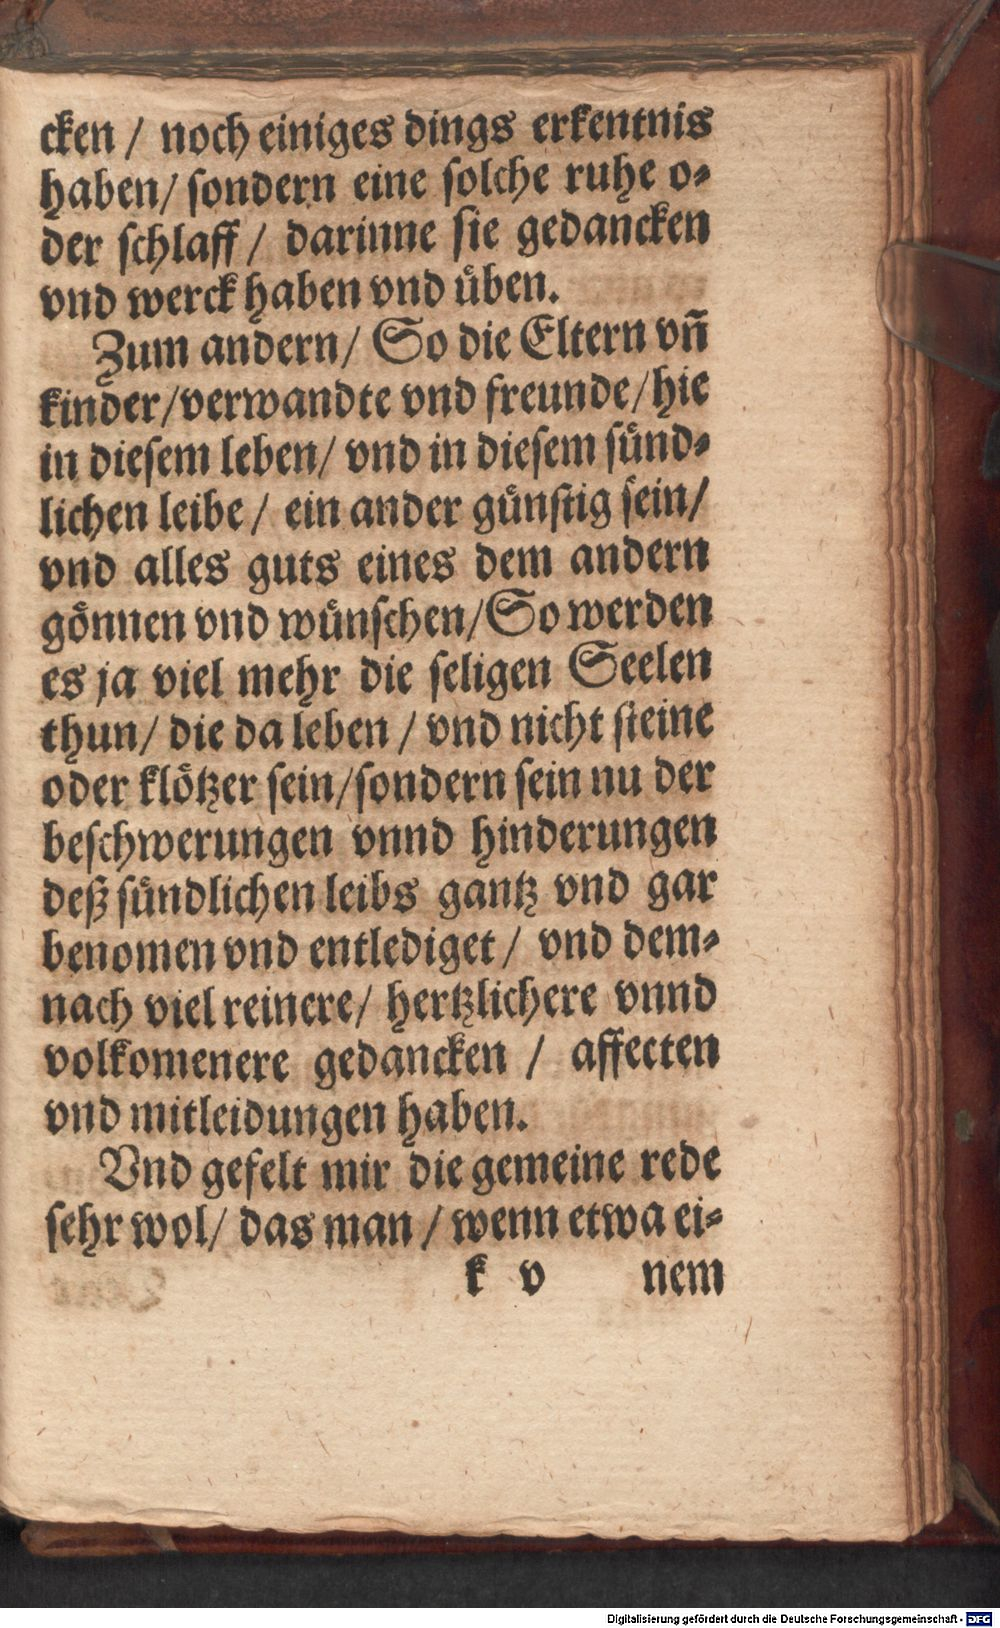 cken / noch einiges dings erkentnis
haben/ sondern eine solche ruhe o-
der schlaff / darinne sie gedancken
vnd werck haben vnd üben.
Zum andern/ So die Eltern vñ
kinder/verwandte vnd freunde/hie
in diesem leben/ vnd in diesem sünd-
lichen leibe / ein ander günstig sein/
vnd alles guts eines dem andern
gönnen vnd wünschen/So werden
es ja viel mehr die seligen Seelen
thun/ die da leben / vnd nicht steine
oder klötzer sein/sondern sein nu der
beschwerungen vnnd hinderungen
deß sündlichen leibs gantz vnd gar
benomen vnd entlediget / vnd dem-
nach viel reinere/ hertzlichere vnnd
volkomenere gedancken / affecten
vnd mitleidungen haben.
Vnd gefelt mir die gemeine rede
sehr wol/ das man / wenn etwa ei-
k v nem
Digitalisierung gefördert durch die Deutsche Forschungsgemeinschaft - DFG